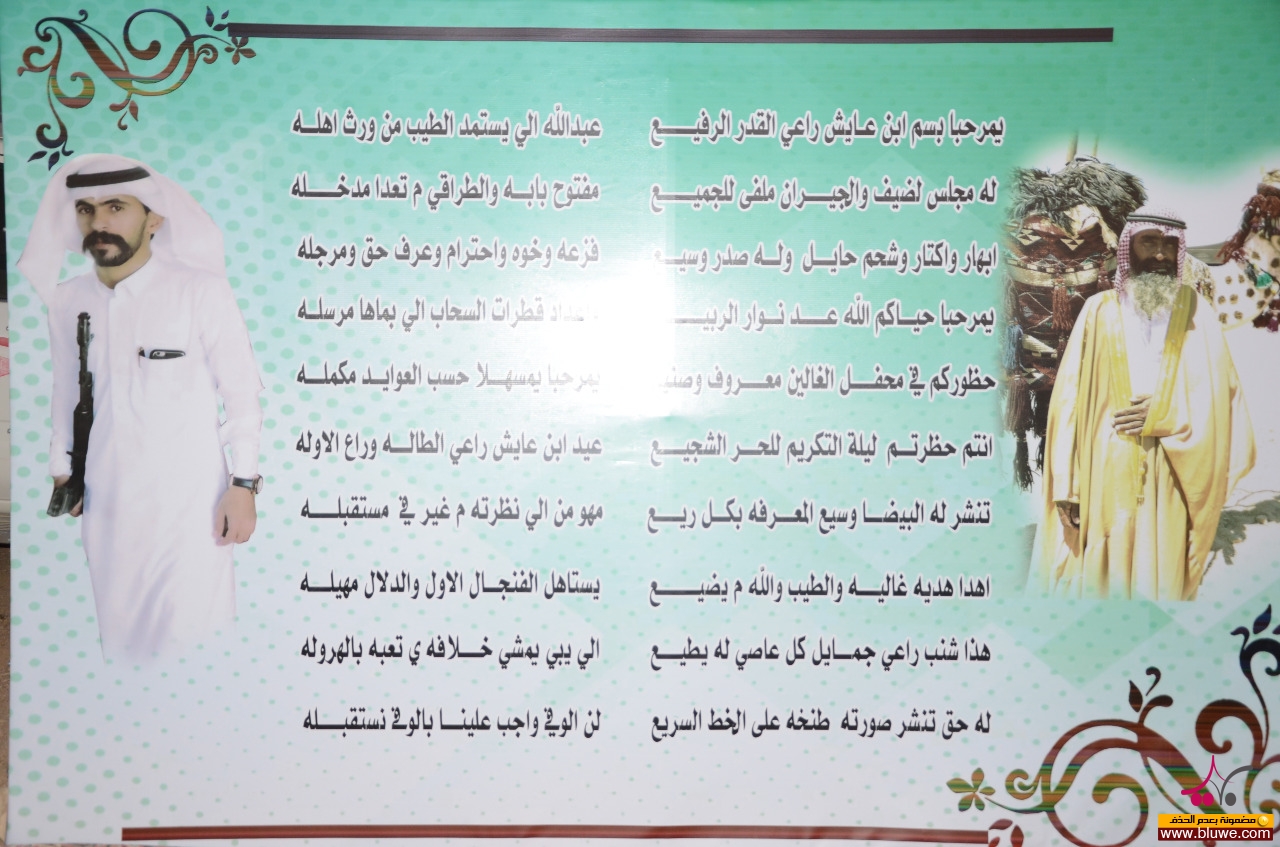 يمرحبا بسم ابن عايش راعي القدر الرفيـــع عبدالله الي يستمد الطيب من ورث اهلـه
له مجلس لضيف والجيـران ملفى للجميـــع مفتوح بابـه والطراقي م تعدا مدخـــله
ابهار واكثار وشحم حايـل ولـه صدر وسيـع فزعه وخوه واحترام وعرف حق ومرجله
يمرحبا حيـاكم الله عـد نـوار الربيـــ اعداد قطرات السحاب الي بماها مرسلـه
حظوركم في محفـل الغالين معـروف يمرحبا يمسهـلا حسب العوايـد مكملـه
انتم حظرتـم ليلة التكريم للحـر الشجيـع عيد ابن عايش راعي الطالـه وراع الاوله
تنشر له البيضـا وسيع المعـرفه بكـل ريـع مهو من الي نظرته م غير في مستقبلـه
اهدا هديه غاليـه والطيب والله م يضيـع يستاهل الفنجال الاول والدلال مهيلـه
هذا شنب راعي جمـايل كل عاصي له يطيـع الي يبي يمشي خـلافه ي تعبه بالهروله
له حق تنشر صورته طنخه على الخط السريع لن الوفي واجب علينـا بالوفي نستقبـله
مضمونة بعدم الحذف
www.bluwe.com